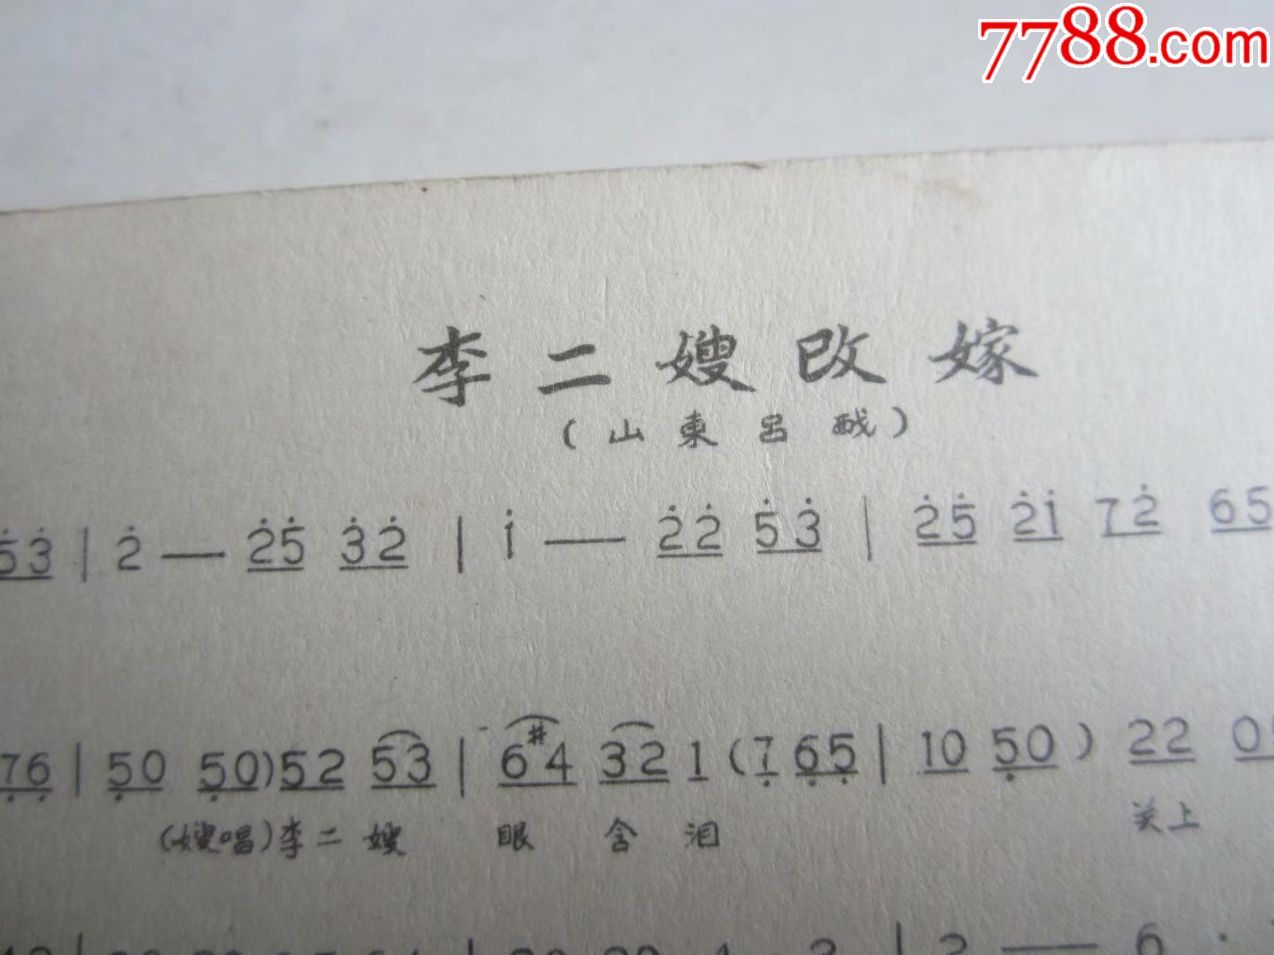 7788.com
李二嫂改嫁
(山東呂戏)
5̇3̇ | 2̇ — 2̇5̇ 3̇2̇ | 1̇ — 2̇2̇ 5̇3̇ | 2̇5̇ 2̇1̇ 72̇ 65
76 | 50 50)52 53 | 6#4 32 1 (7 65 | 10 50) 22 0
(嫂唱)李二嫂 眼含泪 关上